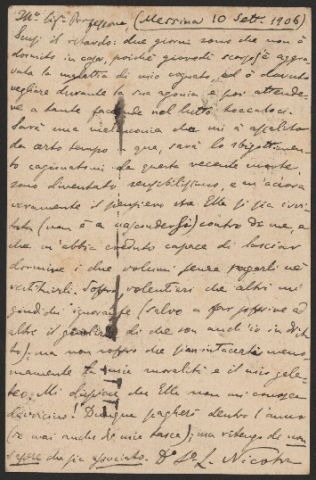 Ill.º Sig.r Professore (Messina 10 Sett. 1906)
Scusi il ritardo: due giorni sono che non ò
dormito in casa, poiché giovedì scorso s'è aggra-
vata la malattia di mio cognato, ed ò dovuto
vegliare durante la sua agonia e poi attende-
re a tante faccende nel lutto toccatoci.
Sarà una melanconia che mi à assalito
da certo tempo in qua, sarà lo sbigottimen-
to cagionatomi da questa recente morte,
sono diventato sensibilissimo, e m'accora
veramente il pensiero che Ella si sia irri-
tata (non è a nascondersi) contro di me, e
che m'abbia creduto capace di lasciar
dormire i due volumi senza pagarli né
restituirli. Soffro volentieri che altri mi
giudichi ignorante (salvo a far passare ad
altri il giudizio di che son anch'io in dirit-
to), ma non soffro che sia intaccata meno-
mamente la mia moralità e il mio gala-
teo. Mi dispiace che Ella non mi conosca
da vicino! Dunque pagherò dentro l'anno
(se mai anche di mia tasca); ma ritengo de non
essere che sia associato. D.º S.º L. Nicotra